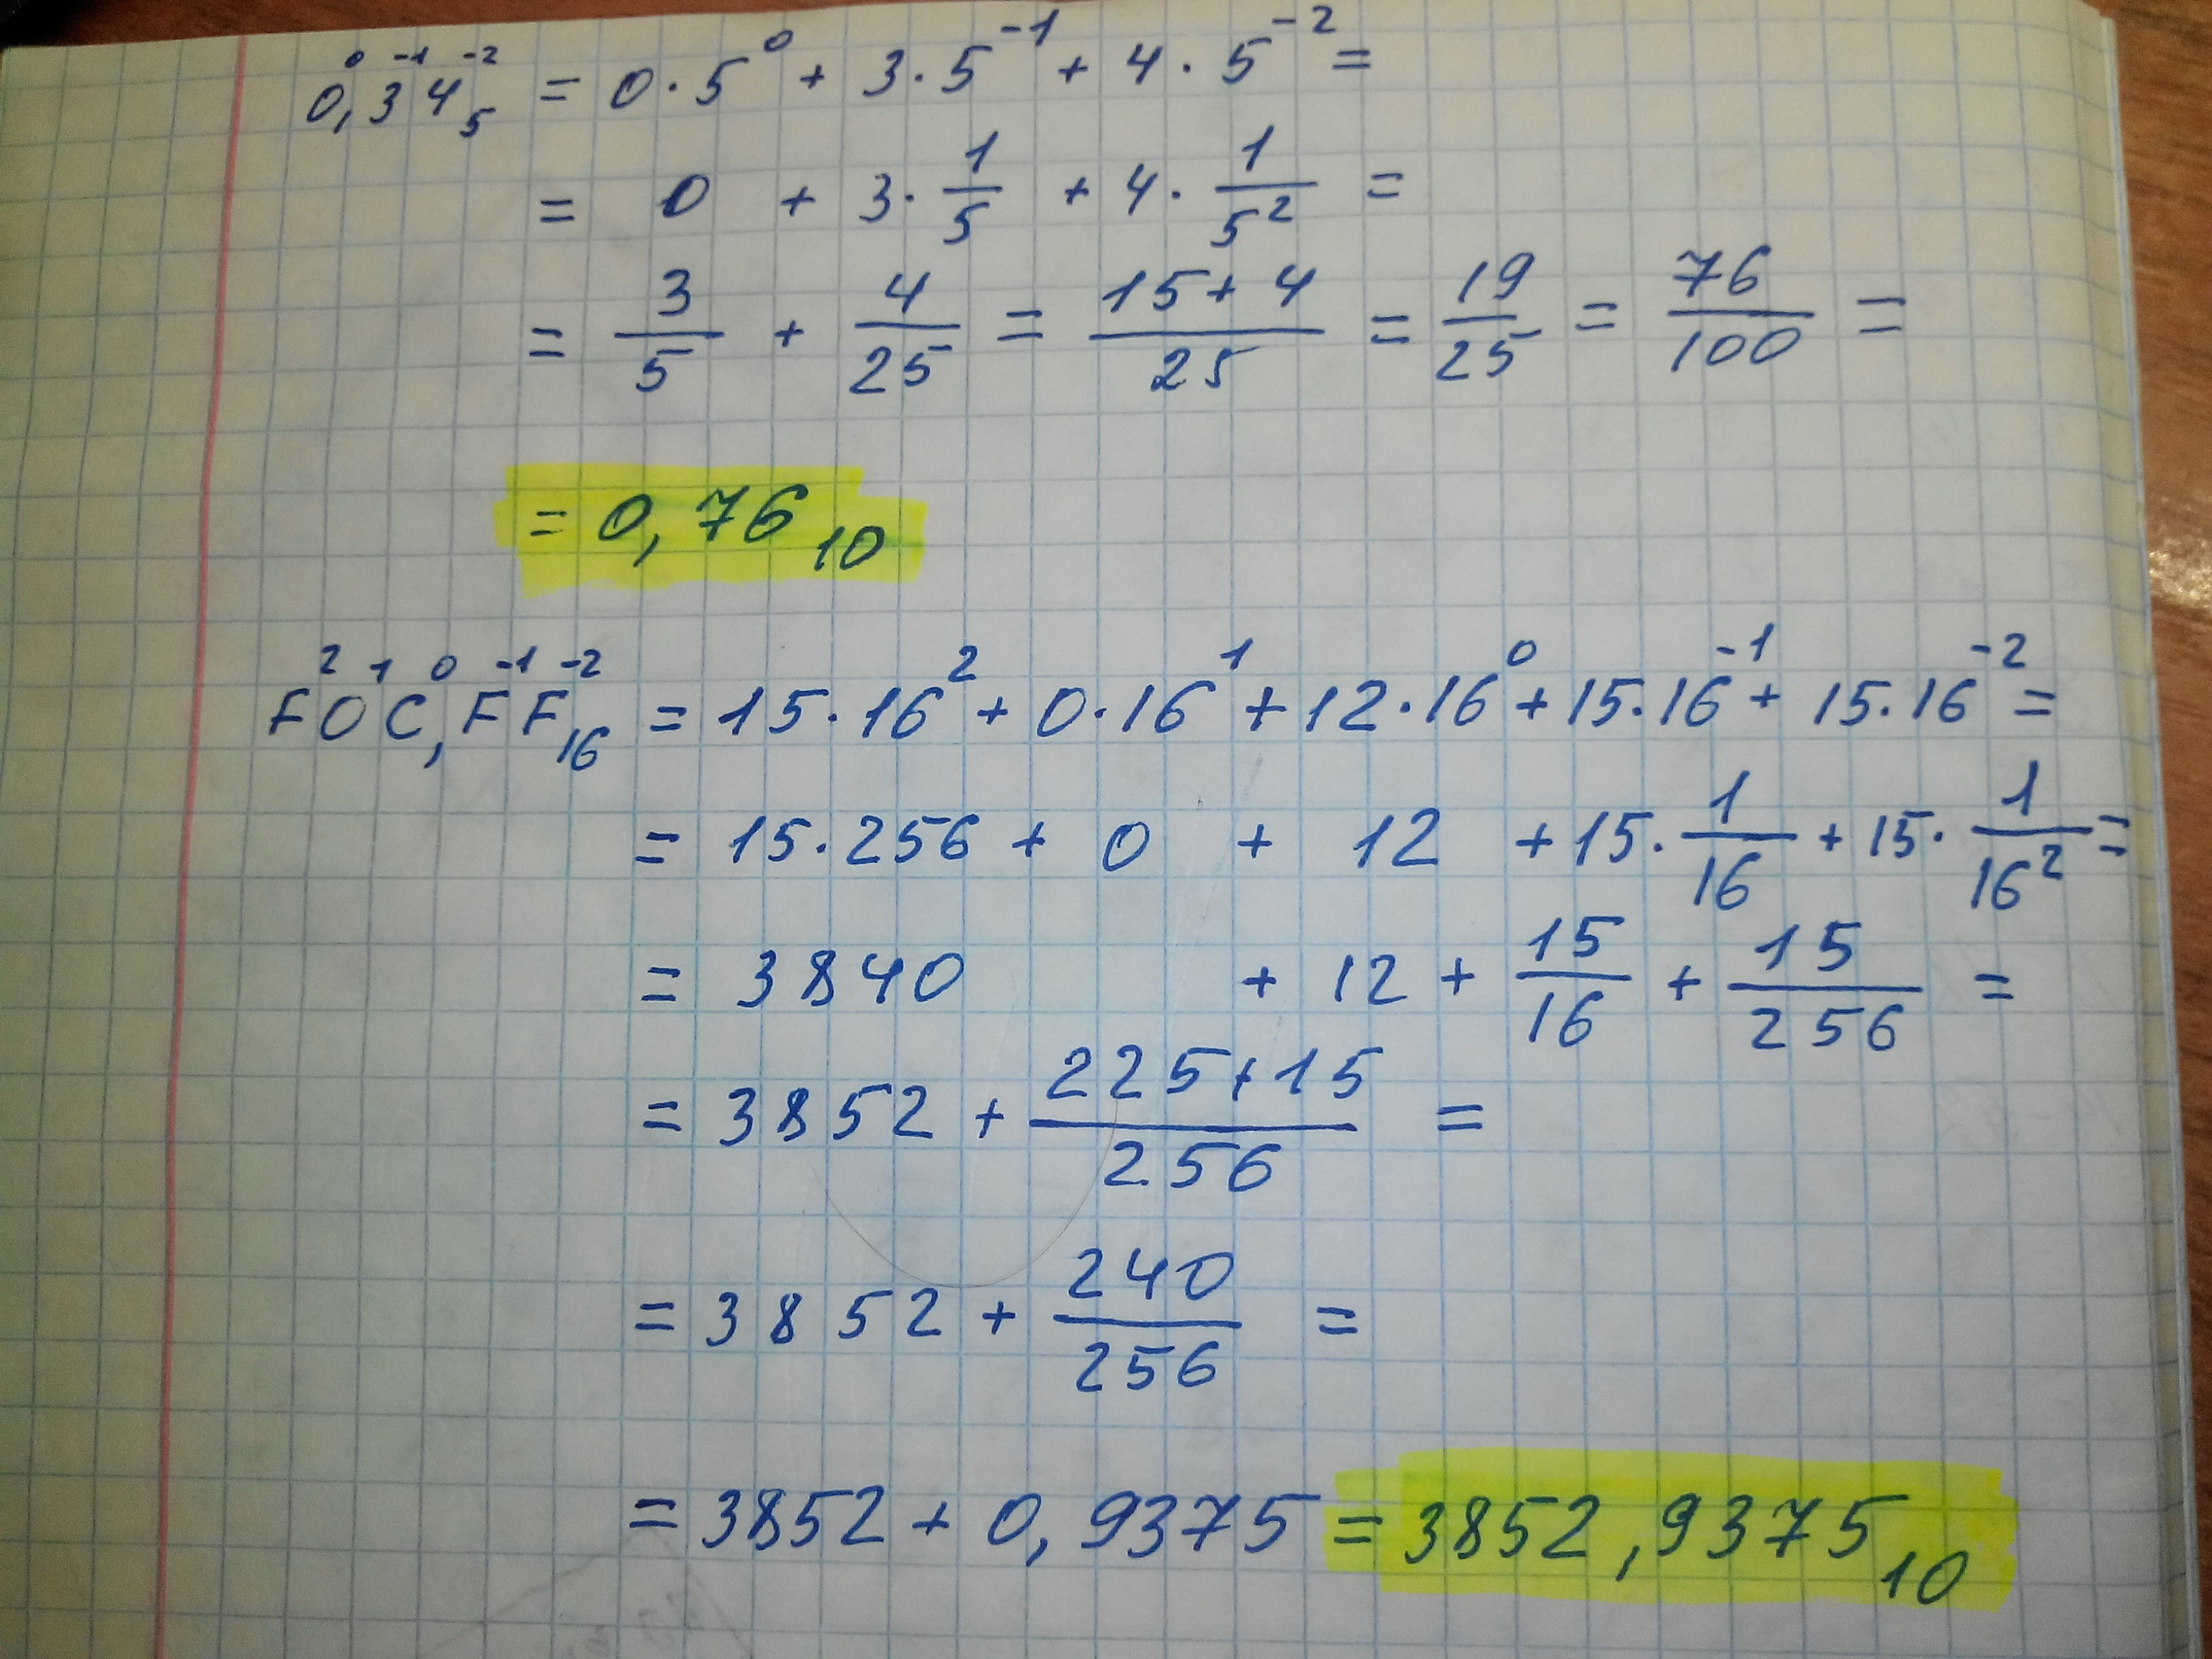 0⁰,3⁻¹4⁻²₅ = 0·5⁰ + 3·5⁻¹ + 4·5⁻² =
= 0 + 3·1/5 + 4·1/5² =
= 3/5 + 4/25 = 15+4/25 = 19/25 = 76/100 =
= 0,76₁₀
F²0¹C⁰,F⁻¹F⁻²₁₆ = 15·16² + 0·16¹ + 12·16⁰ + 15·16⁻¹ + 15·16⁻² =
= 15·256 + 0 + 12 + 15·1/16 + 15·1/16² =
= 3840 + 12 + 15/16 + 15/256 =
= 3852 + 225+15/256 =
= 3852 + 240/256 =
= 3852 + 0,9375 = 3852,9375₁₀